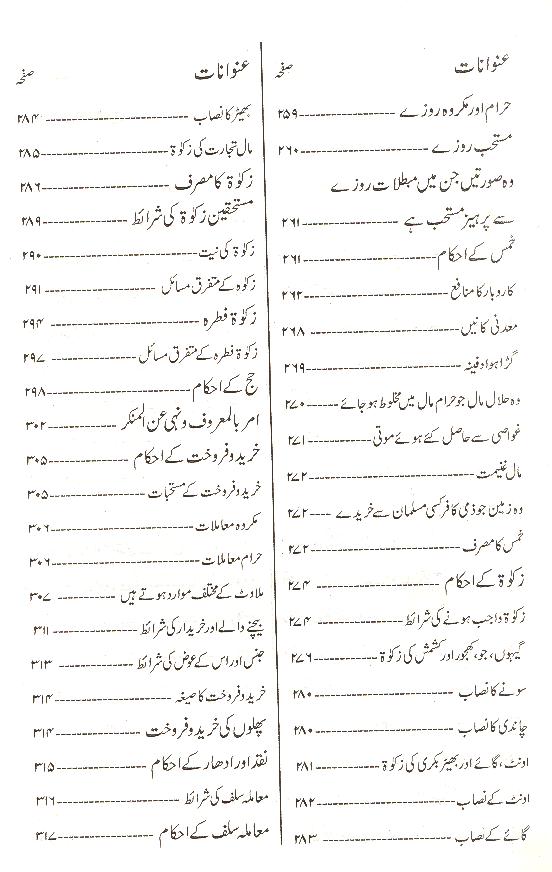 عنوانات صفحہ
حرام اور مکروہ روزے ۲۵۹
مستحب روزے ۲۶۰
وہ صورتیں جن میں مبطلات روزے
سے پرہیز مستحب ہے ۲۶۱
خمس کے احکام ۲۶۱
کاروبار کا منافع ۲۶۲
معدنی کانیں ۲۶۸
گڑا ہوا دفینہ ۲۶۹
وہ حلال مال جو حرام مال میں مخلوط ہو جائے ۲۷۰
غواصی سے حاصل کئے ہوئے موتی ۲۷۱
مال غنیمت ۲۷۲
وہ زمین جو ذمی کافر کسی مسلمان سے خریدے ۲۷۲
خمس کا مصرف ۲۷۲
زکوٰۃ کے احکام ۲۷۴
زکوٰۃ واجب ہونے کی شرائط ۲۷۴
گیہوں، جو، کھجور اور کشمش کی زکوٰۃ ۲۷۶
سونے کا نصاب ۲۸۰
چاندی کا نصاب ۲۸۰
اونٹ، گائے اور بھیڑ بکری کی زکوٰۃ ۲۸۱
اونٹ کے نصاب ۲۸۲
گائے کے نصاب ۲۸۳
عنوانات صفحہ
بھیڑ کا نصاب ۲۸۴
مال تجارت کی زکوٰۃ ۲۸۵
زکوٰۃ کا مصرف ۲۸۶
مستحقین زکوٰۃ کی شرائط ۲۸۹
زکوٰۃ کی نیت ۲۹۰
زکوٰہ کے متفرق مسائل ۲۹۱
زکوٰۃ فطرہ ۲۹۴
زکوٰۃ فطرہ کے متفرق مسائل ۲۹۷
حج کے احکام ۲۹۸
امر بالمعروف و نہی عن المنکر ۳۰۲
خرید و فروخت کے احکام ۳۰۵
خرید و فروخت کے مستحبات ۳۰۵
مکروہ معاملات ۳۰۶
حرام معاملات ۳۰۶
ملاوٹ کے مختلف موارد ہوتے ہیں ۳۰۷
بیچنے والے اور خریدار کی شرائط ۳۱۱
جنس اور اس کے عوض کی شرائط ۳۱۳
خرید و فروخت کا صیغہ ۳۱۴
پھلوں کی خرید و فروخت ۳۱۴
نقد اور ادھار کے احکام ۳۱۵
معاملہ سلف کی شرائط ۳۱۶
معاملہ سلف کے احکام ۳۱۷